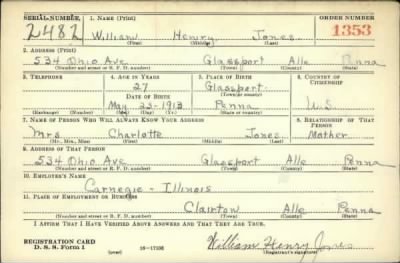 SERIAL NUMBER 1. NAME (Print) ORDER NUMBER
2482 William Henry Jones 1353
(First) (Middle) (Last)
2. ADDRESS (Print)
534 Ohio Ave Glassport Alle Penna
(Number and street or R. F. D. number) (Town) (County) (State)
3. TELEPHONE 4. AGE IN YEARS 5. PLACE OF BIRTH 6. COUNTRY OF CITIZENSHIP
27 Glassport
DATE OF BIRTH (Town or county)
May 23-1913 Penna U.S
(Exchange) (Number) (Mo.) (Day) (Yr.) (State or country)
7. NAME OF PERSON WHO WILL ALWAYS KNOW YOUR ADDRESS 8. RELATIONSHIP OF THAT PERSON
Mrs Charlotte Jones Mother
(Mr., Mrs., Miss) (First) (Middle) (Last)
9. ADDRESS OF THAT PERSON
534 Ohio Ave Glassport Alle Penna
(Number and street or R. F. D. number) (Town) (County) (State)
10. EMPLOYER'S NAME
Carnegie - Illinois
11. PLACE OF EMPLOYMENT OR BUSINESS
Clairton Alle Penna
(Number and street or R. F. D. number) (Town) (County) (State)
I AFFIRM THAT I HAVE VERIFIED ABOVE ANSWERS AND THAT THEY ARE TRUE.
REGISTRATION CARD
D. S. S. Form 1 (over) William Henry Jones
(Registrant's signature)